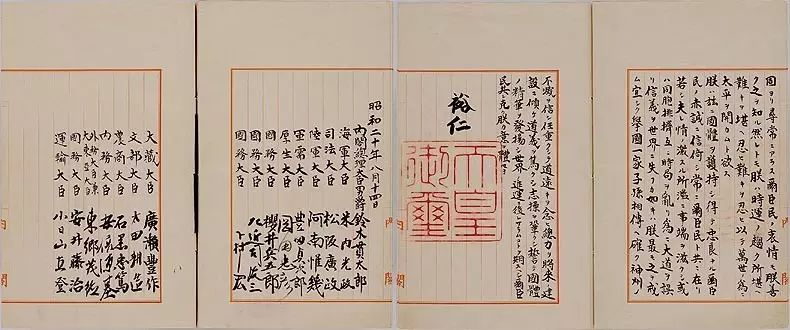 固ヨリ尋常ニアラス爾臣民ノ衷情モ朕善
ク之ヲ知ル然レトモ朕ハ時運ノ趨ク所堪ヘ
難キヲ堪ヘ忍ヒ難キヲ忍ヒ以テ萬世ノ爲ニ
太平ヲ開カムト欲ス
朕ハ茲ニ國體ヲ護持シ得テ忠良ナル爾臣
民ノ赤誠ニ信倚シ常ニ爾臣民ト共ニ在リ
若シ夫レ情ノ激スル所濫ニ事端ヲ滋クシ或
ハ同胞排擠互ニ時局ヲ亂リ爲ニ大道ヲ誤
リ信義ヲ世界ニ失フカ如キハ朕最モ之ヲ戒
ム宜シク擧國一家子孫相傳ヘ確ク神州ノ
不滅ヲ信シ任重クシテ道遠キヲ念ヒ總力ヲ將來ノ建
設ニ傾ケ道義ヲ篤クシ志操ヲ鞏クシ誓テ國體
ノ精華ヲ發揚シ世界ノ進運ニ後レサラムコトヲ期スヘシ爾臣
民其レ克ク朕カ意ヲ體セヨ
裕仁
天皇
御璽
昭和二十年八月十四日
内閣總理大臣男爵鈴木貫太郎
海軍大臣 米内光政
司法大臣 松阪廣政
陸軍大臣 阿南惟幾
軍需大臣 豊田貞次郎
厚生大臣 岡田忠彦
國務大臣 櫻井兵五郎
國務大臣 左近司政三
國務大臣 下村宏
大藏大臣 廣瀬豊作
文部大臣 太田耕造
農商大臣 石黒忠篤
内務大臣 安倍源基
外務大臣兼大東亞大臣 東郷茂徳
國務大臣 安井藤治
運輸大臣 小日山直登